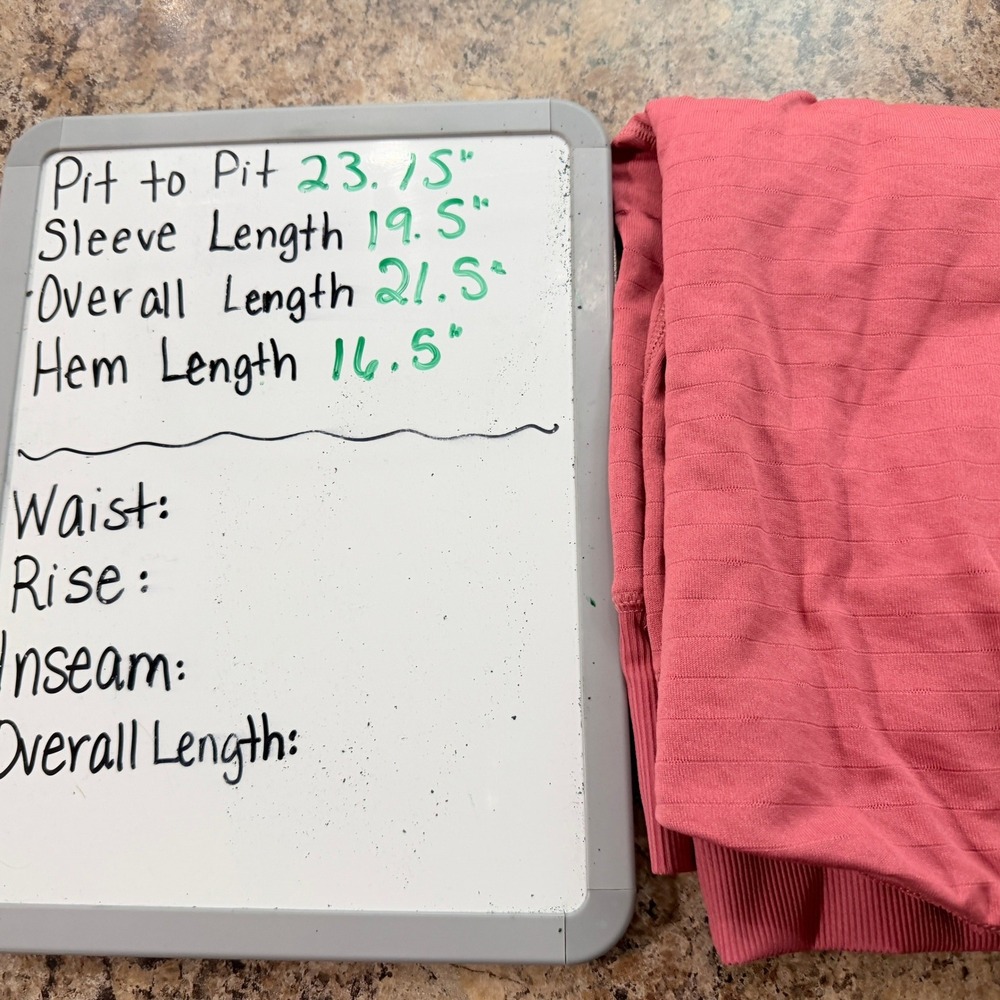 Pit to Pit 23.75"
Sleeve Length 19.5"
Overall Length 21.5"
Hem Length 16.5"
Waist:
Rise:
Inseam:
Overall Length: